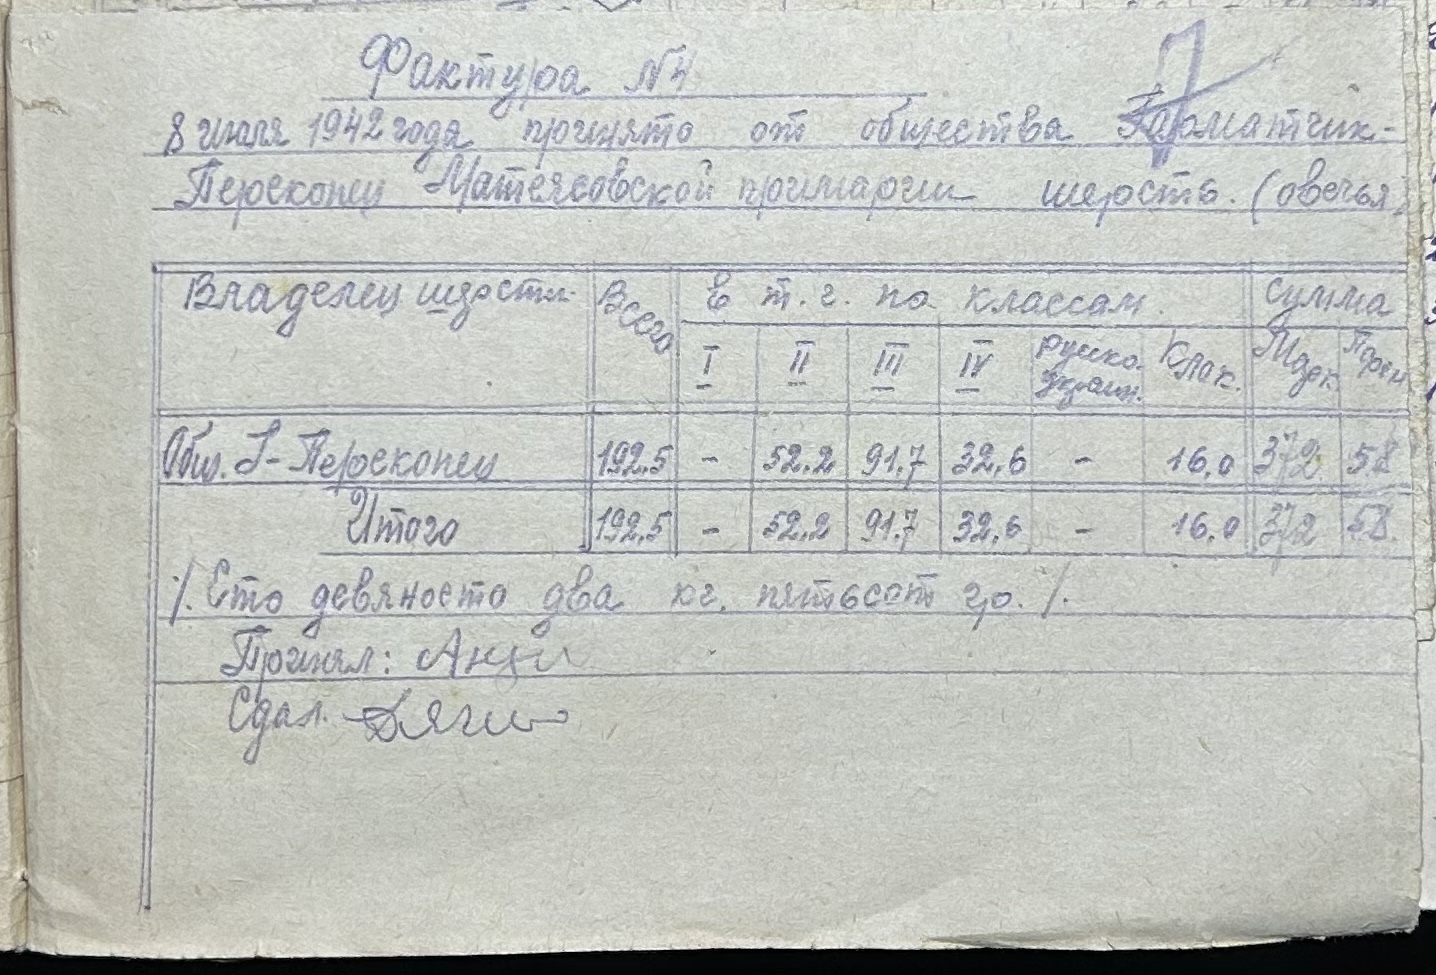 Фактура №4
8 июля 1942 года принято от общества Гарматчик-
Пересконец Матеясовской примарии шерсть. (овечья)
Владелец шерсти Всего в т. г. по классам. сумма
I II III IV русско-украин. Клок. Мдек Прем
Общ. Г-Пересконец 192,5 - 52,2 91,7 32,6 - 16,0 372 58
Итого 192,5 - 52,2 91,7 32,6 - 16,0 372 58.
/. Сто девяносто два кг. пятьсот гр. /.
Принял:
Сдал.